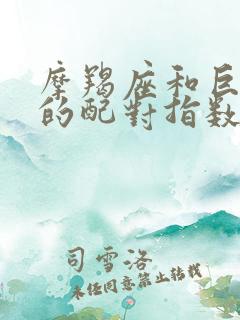 摩羯座和巨
的配對指数
司雪洛
未任同意禁止转载